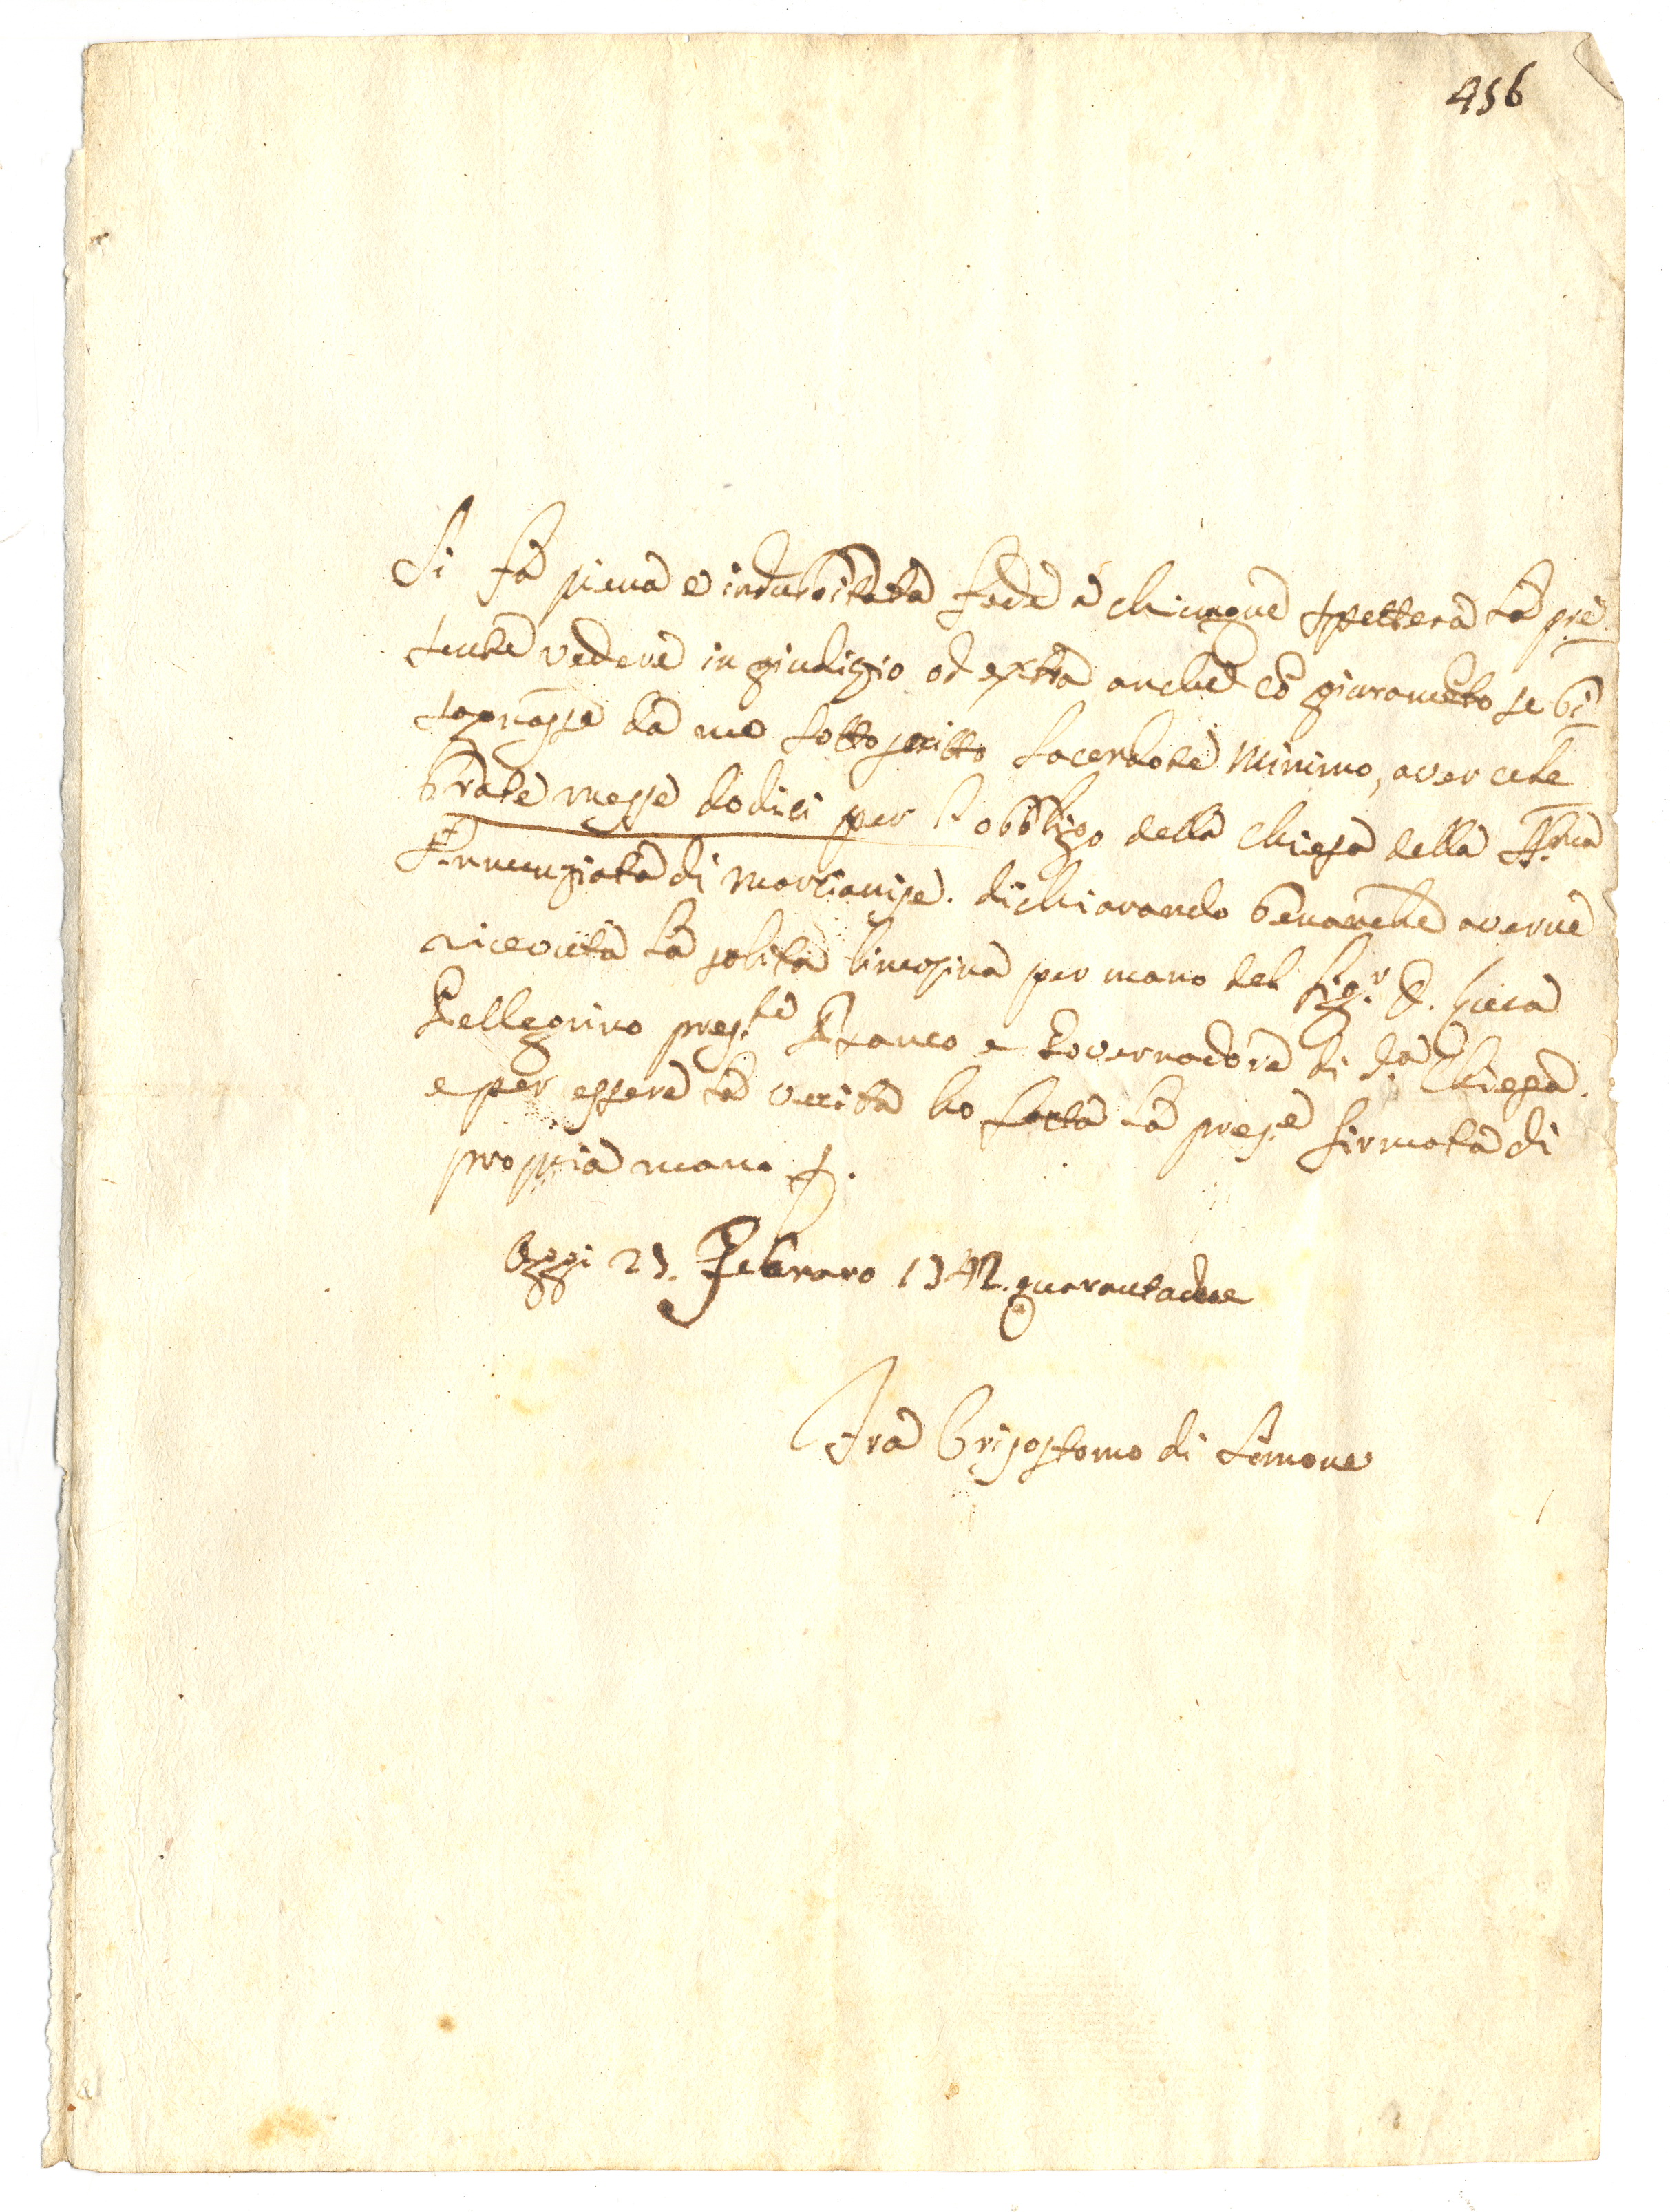 456
Si fà piena e indubbitata fede à chiunque spetterà la pre
sente vedere in giudizio od extra anche cõ giuramẽto se bi
sognasse da me sottoscritto Sacerdote Minimo, aver cele
brate messe dodici per l'obbligo della Chiesa della SS.ma
Annunziata di Marcianise. dichiarando benanche averne
ricevuta la solita limosina per mano del Sig.r D. Luca
Pellegrino pres.te Franco e Governadore di d.a Chiesa.
e per essere la verità ho fatta la pres.e firmata di
propria mano
Oggi 23. Febraro 1742. quarantadue
Fra Grisostomo di Simone